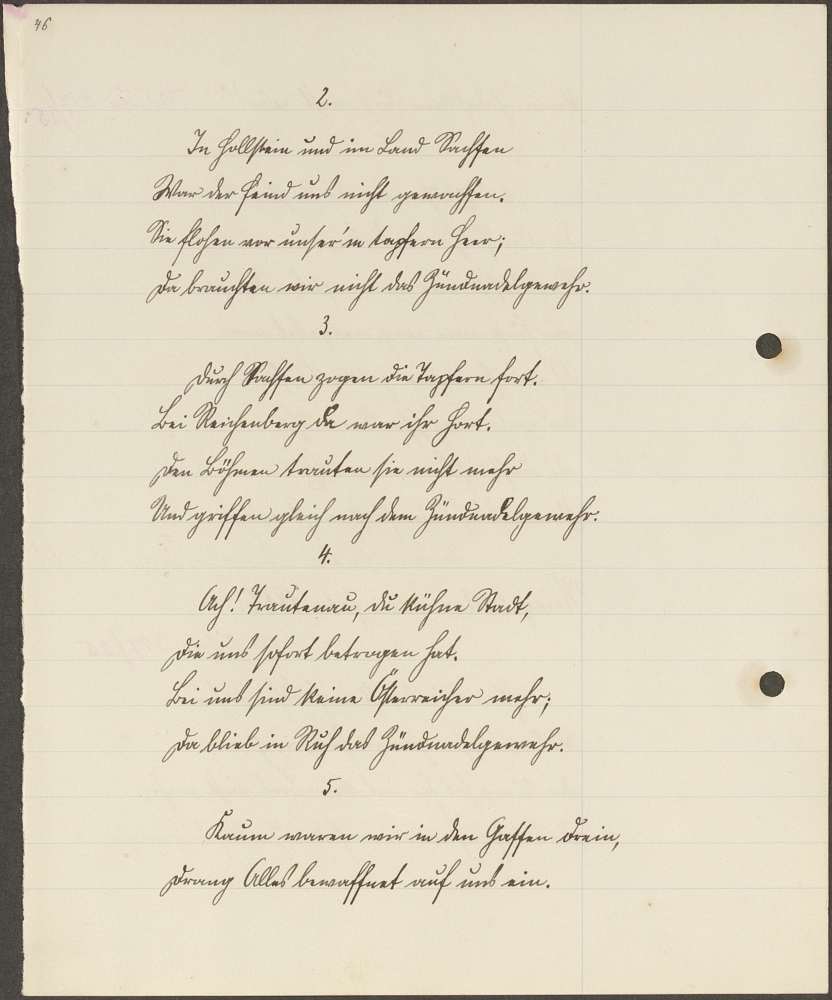 46
2.
In Hollstein und im Land Sachsen
War der Feind uns nicht gewachsen.
Sie flohen vor unser'm tapfern Heer;
Da brauchten wir nicht das Zündnadelgewehr.
3.
Durch Sachsen zogen die Tapfern fort.
Bei Reichenberg da war ihr Hort.
Den Böhmen trauten sie nicht mehr
Und griffen gleich nach dem Zündnadelgewehr.
4.
Ach! Trautenau, du kühne Stadt,
Die uns sofort betrogen hat.
Bei uns sind keine Österreicher mehr;
Da blieb in Ruh das Zündnadelgewehr.
5.
Kaum waren wir in den Gassen drein,
Drang Alles bewaffnet auf uns ein.